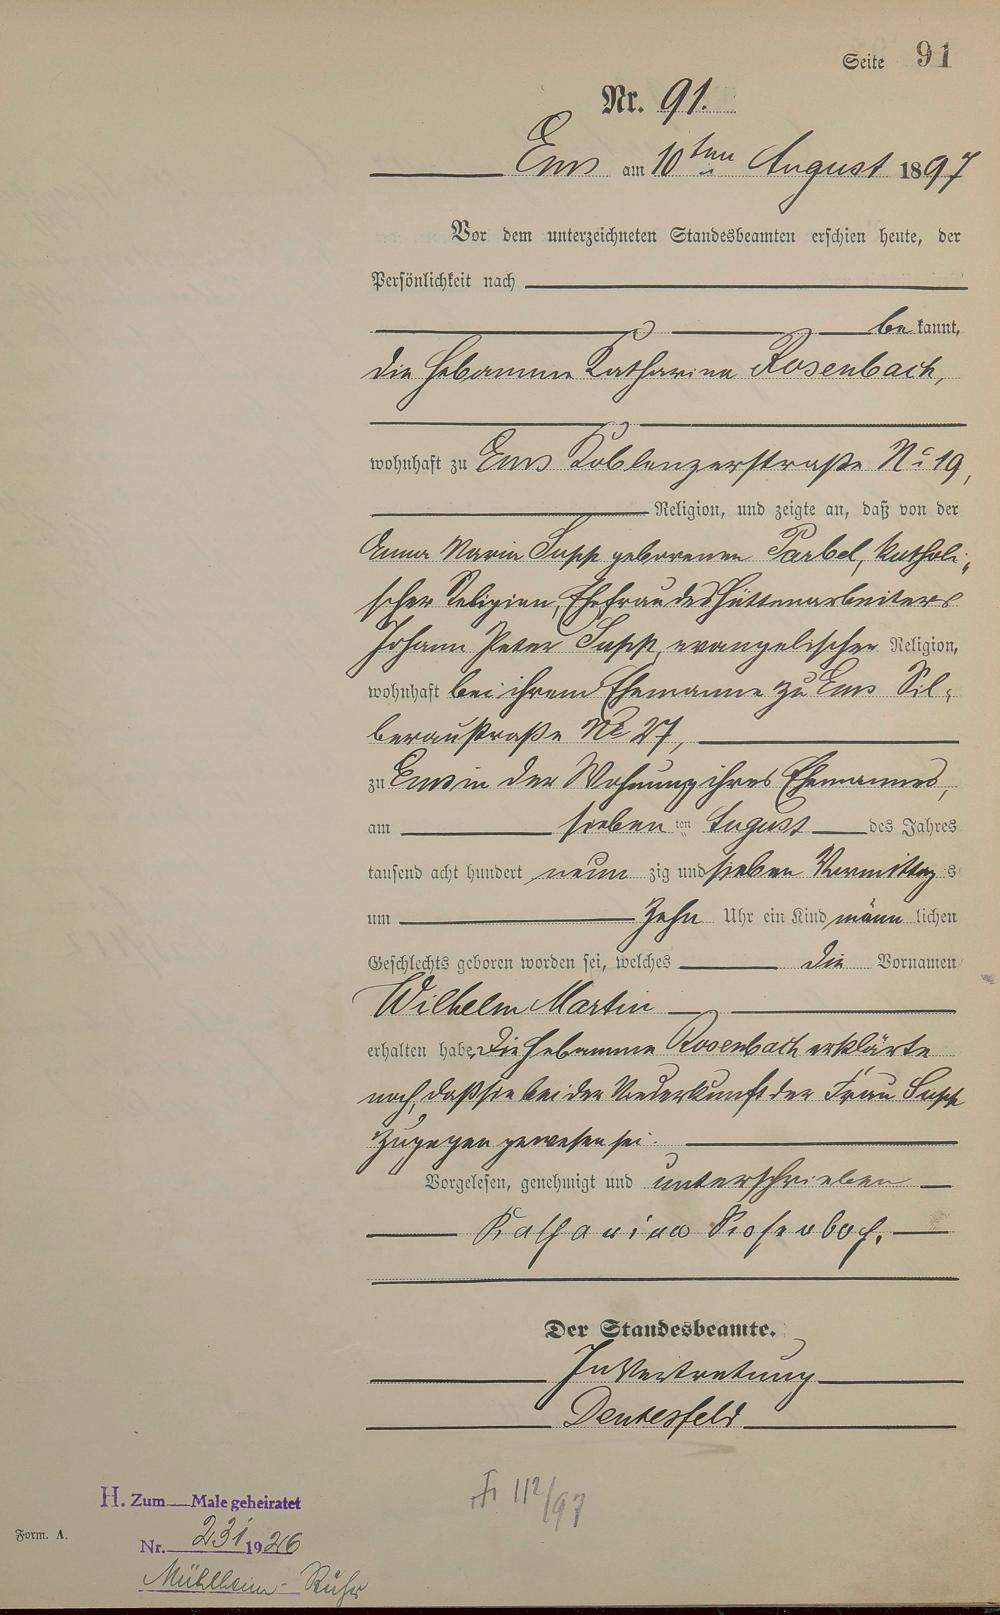 Seite 91
Nr. 91.
Ems am 10ten August 1897
Vor dem unterzeichneten Standesbeamten erschien heute, der
Persönlichkeit nach
bekannt,
die Hebamme Katharina Rosenbach,
wohnhaft zu Ems Koblenzerstraße No 19,
Religion, und zeigte an, daß von der
Anna Maria Supp geborenen Parbel, katholi-
scher Religion, Ehefrau des Hüttenarbeiters
Johann Peter Supp, evangelischer Religion,
wohnhaft bei ihrem Ehemanne zu Ems Sil-
beraustraße No 27,
zu Ems in der Wohnung ihres Ehemannes,
am siebenten August des Jahres
tausend acht hundert neunzig und sieben Vormittags
um zehn Uhr ein Kind männlichen
Geschlechts geboren worden sei, welches die Vornamen
Wilhelm Martin
erhalten habe. Die Hebamme Rosenbach erklärte
noch, daß sie bei der Niederkunft der Frau Supp
zugegen gewesen sei.
Vorgelesen, genehmigt und unterschrieben
Katharina Rosenbach.
Der Standesbeamte.
In Vertretung
H. Zum Male geheiratet
112/97
Form. A.
Nr. 231 1926
Mühlheim-Ruhr